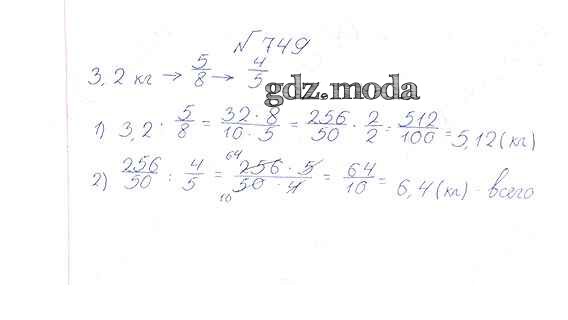 № 749
3,2 кг → 5/8 → 4/5
gdz.moda
1) 3,2 : 5/8 = 32 · 8 / 10 · 5 = 256/50 · 2/2 = 512/100 = 5,12 (кг)
2) 256/50 : 4/5 = 64 256 · 5 / 50 · 4 10 = 64/10 = 6,4 (кг) - всего